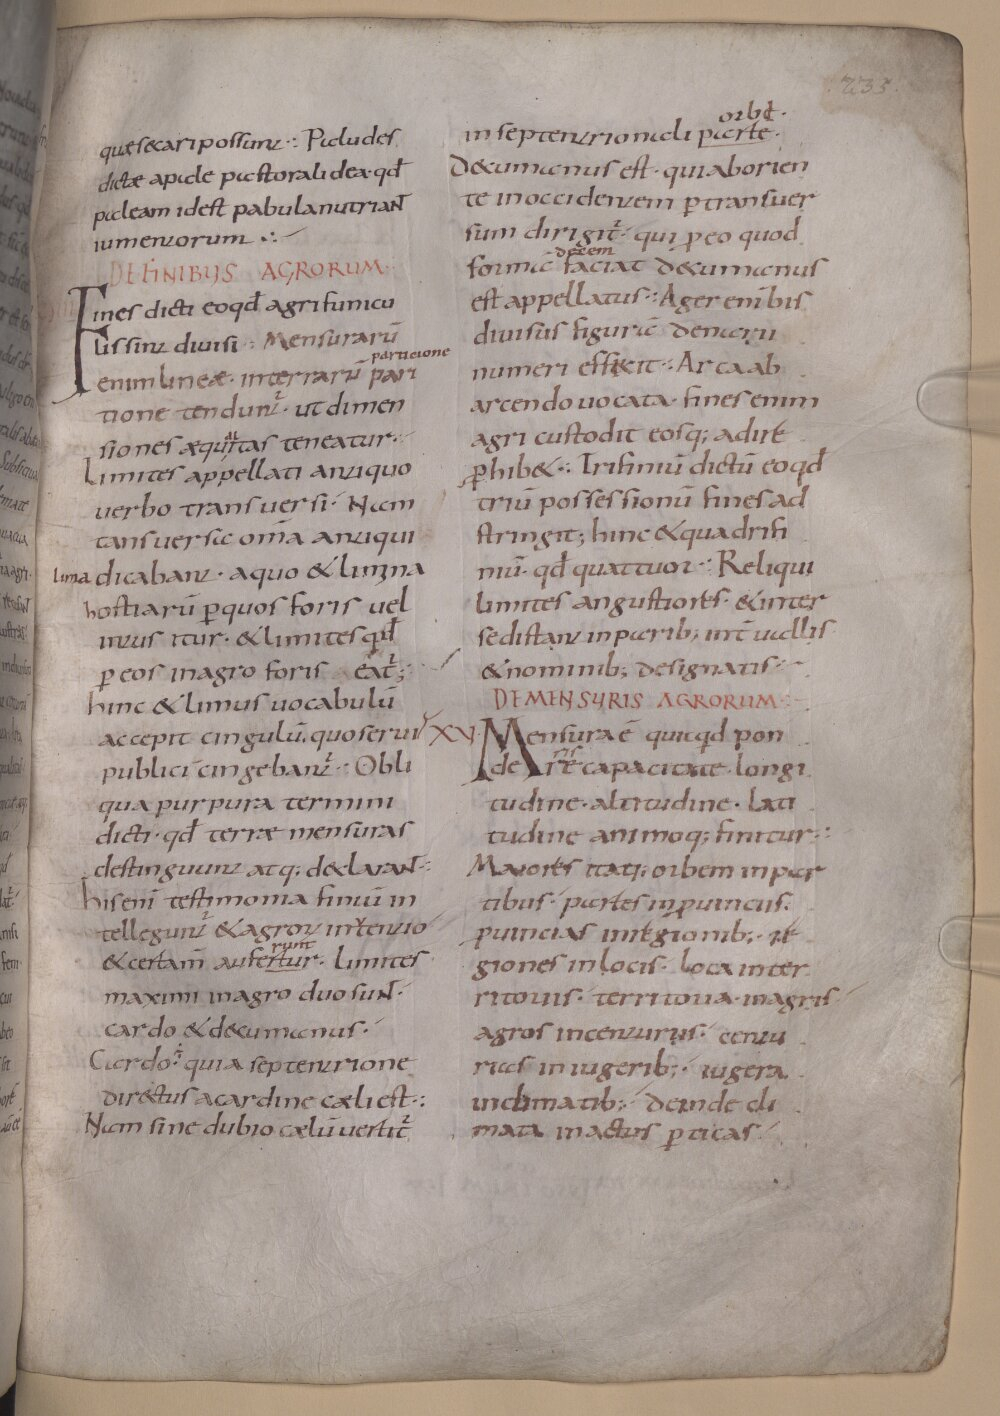 235.
quæ secari possunt·: Paludes
dictæ a pale pastorali dea· qđ
paleam id est pabula nutriant
iumentorum ·:·
DE FINIBUS AGRORUM·
Fines dicti eo qđ agri funicu
lis sint diuisi· Mensurarū
particione
enim lineæ· in terrarū pari
tione tendunt̉· ut dimen
siones æquitas teneatur·
Limites appellati antiquo
uerbo transuersi· Nam
tansuersa om̄a antiqui
lima dicabant· a quo & limina
hostiarū ꝑ quos foris uel
intus itur· & limites qđ
ꝑ eos in agro foris eat̉;
hinc & limus uocabulū
accepit cingulū, quo serui
publici cingebant̉·: Obli
qua purpura termini
dicti· qđ terræ mensuras
destinguunt atq; declarant·:
his eni testimonia finiū in
tellegunt̉ & agrorū intentio
runt
& certam aufertur· Limites
maximi in agro duo sunt·
cardo & decumanus·
Cardo· quia septentrione
directus a cardine cæli est·:
Nam sine dubio cælū uertit̉
orbē·
in septentrionali parte·
Decumanus est· qui ab orien
te in occidentem ꝑ transuer
sum dirigit̉· qui ꝑ eo quod
decem
forma faciat decumanus
est appellatus·: Ager enī bis
diuisus figura denarii
numeri efficit·: Arca ab
arcendo uocata· fines enim
agri custodit eosq; adire
ꝓhib&·: Trifiniū dictū eo qđ
triū possessionū fines ad
stringit; hinc & quadrifi
niū· qđ quattuor·: Reliqui
limites angustiores· & inter
se distant in parib; int̄uallis
& nominib; designatis·
DE MENSURIS AGRORUM·
XV Mensura ē quicqđ pon
ris
dere capacitate· longi
tudine· altitudine· lati
tudine animoq; finitur·:
Maiores itaq; orbem in par
tibus· partes in ꝓuinciis·
ꝓuincias in regionib;· re
giones in locis· loca in ter
ritoriis· territoria· in agris
agros in centuriis· centu
rias in iugerib;· iugera
in climatib;· deinde cli
mata in actus ꝑticas